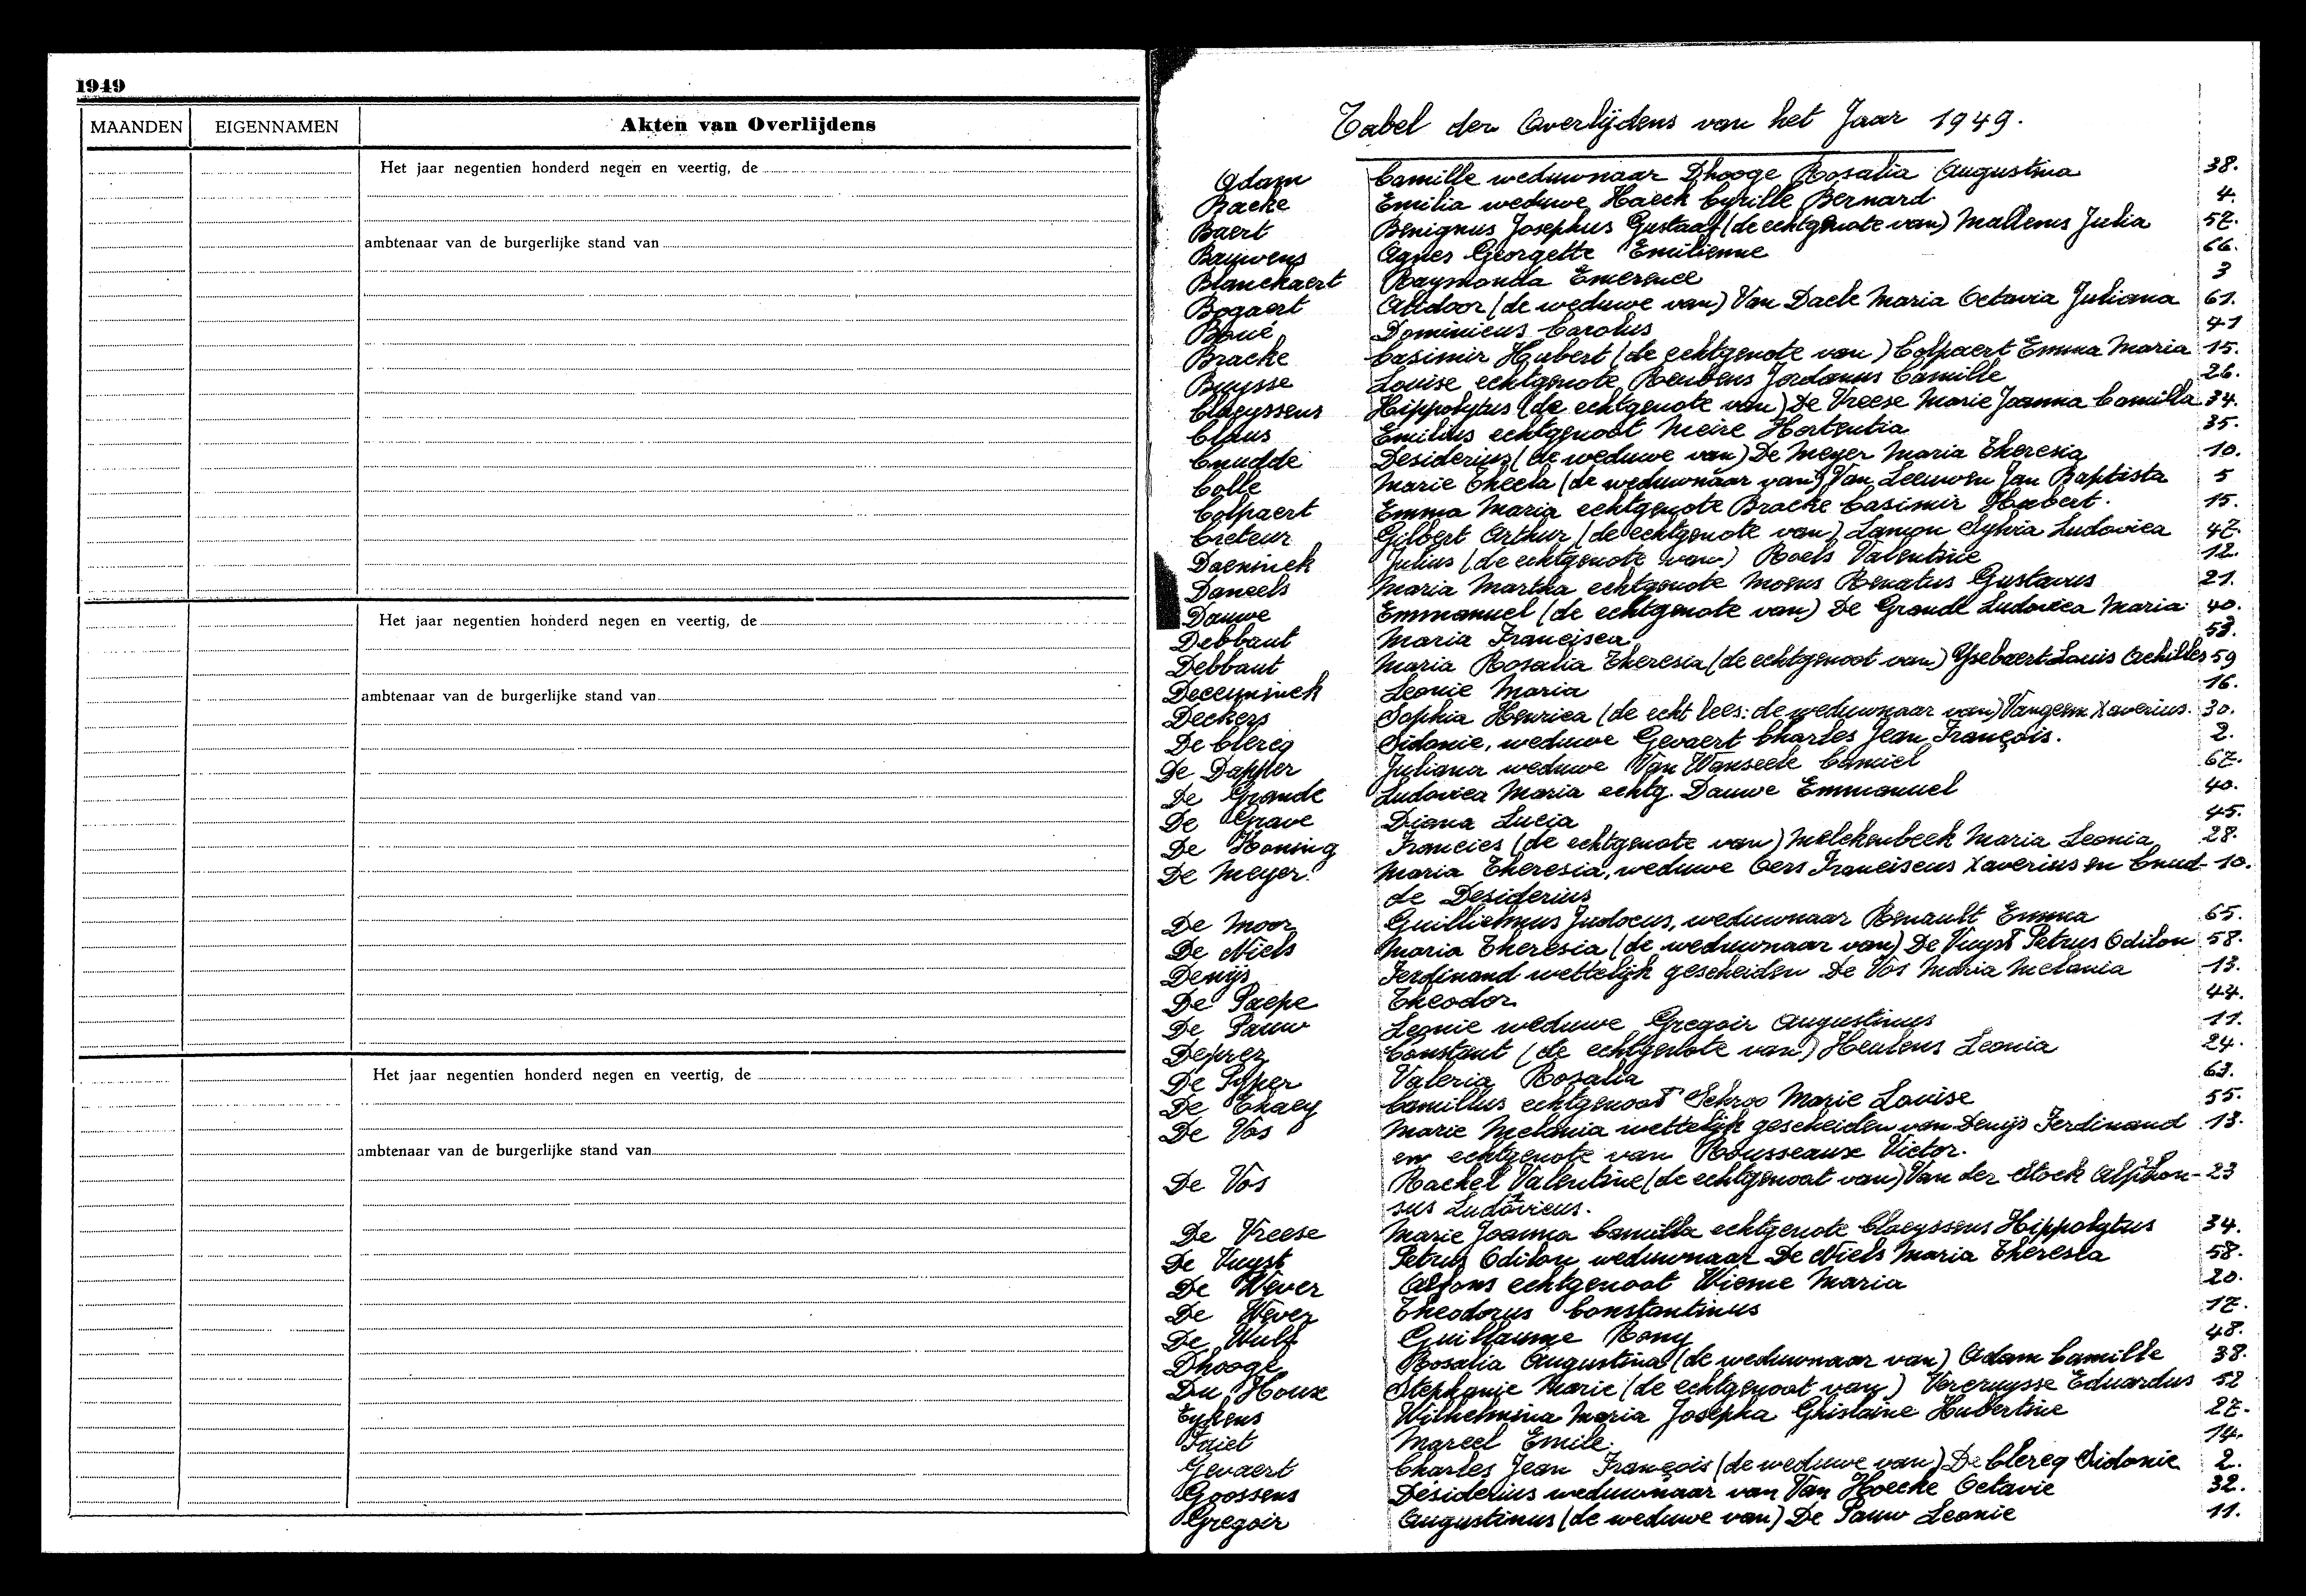 1949
MAANDEN EIGENNAMEN Akten van Overlijdens
Het jaar negentien honderd negen en veertig, de
ambtenaar van de burgerlijke stand van
Het jaar negentien honderd negen en veertig, de
ambtenaar van de burgerlijke stand van
Het jaar negentien honderd negen en veertig, de
ambtenaar van de burgerlijke stand van
Tabel der Overlijdens van het Jaar 1949.
Adam Camille weduwnaar Dhooge Rosalia Augustina 38.
Bracke Emilia weduwe Haeck Cyrille Bernard 4.
Baert Benignus Josephus Gustaaf (de echtgenote van) Mallems Julia 57.
Bauwens Agnes Georgette Emilienne 66.
Blanckaert Raymonda Emerence 3
Bogaert Alidoor (de weduwe van) Van Daele Maria Octavia Juliana 61.
Boué Dominicus Carolus 41
Bracke Casimir Hubert (de echtgenote van) Colpaert Emma Maria 15.
Buysse Louise echtgenote Reubens Jordanus Camille 26.
Claeyssens Hippolytus (de echtgenote van) De Vreese Marie Joanna Camilla 34.
Claus Emilius echtgenoot Meire Hortentia 35.
Cnudde Desiderius (de weduwe van) De Meyer Maria Theresia 10.
Colle Marie Thecla (de weduwnaar van) Van Leeuwen Jan Baptista 5
Colpaert Emma Maria echtgenote Bracke Casimir Hubert. 15.
Creteur Gilbert Arthur (de echtgenote van) Lanson Sylvia Ludovica 47.
Daeninck Julius (de echtgenote van) Roels Valentine 12.
Daneels Maria Martha echtgenote Moens Renatus Gustavus 21.
Dauwe Emmanuel (de echtgenote van) De Grande Ludovica Maria 40.
Debbaut Maria Francisca 53.
Debbaut Maria Rosalia Theresia (de echtgenoot van) Ysebaert Louis Achilles 59
Deceuninck Leonie Maria 16.
Deckers Sophia Henrica (de echt lees: de weduwnaar van) Vangeem Xaverius. 30.
De Clercq Sidonie, weduwe Gevaert Charles Jean François. 2.
De Dapper Juliana weduwe Van Wanseele Camiel 67.
De Grande Ludovica Maria echtg. Dauwe Emmanuel 40.
De Grave Diana Lucia 45.
De Koning Francies (de echtgenote van) Melckenbeek Maria Leonia 28.
De Meyer Maria Theresia, weduwe Oers Franciscus Xaverius en Cnud- 10.
de Desiderius
De Moor Guillielmus Judocus, weduwnaar Renault Emma 65.
De Niels Maria Theresia (de weduwnaar van) De Vuyst Petrus Odilon 58.
Denijs Ferdinand wettelijk gescheiden De Vos Maria Melania 13.
De Paepe Theodor 44.
De Pauw Leonie weduwe Gregoir Augustinus 11.
Deprez Constant (de echtgenote van) Heulens Leonia 24.
De Pyper Valeria Rosalia 63.
De Thaey Camillus echtgenoot Schroo Marie Louise 55.
De Vos Marie Melania wettelijk gescheiden van Denijs Ferdinand 13.
en echtgenote van Rousseaux Victor.
De Vos Rachel Valentine (de echtgenoot van) Van der Stock Alphon- 23
sus Ludovicus.
De Vreese Marie Joanna Camilla echtgenote Claeyssens Hippolytus 34.
De Vuyst Petrus Odilon weduwnaar De Niels Maria Theresia 58.
De Wever Alfons echtgenoot Wieme Maria 20.
De Wever Theodorus Constantinus 17.
De Wulf Guillaume Rony 48.
Dhooge Rosalia Augustina (de weduwnaar van) Adam Camille 38.
Du Houx Stephanie Marie (de echtgenoot van) Vercruysse Eduardus 52
Eykens Wilhelmina Maria Josepha Ghislaine Hubertine 27.
Friet Marcel Emile. 14.
Gevaert Charles Jean François (de weduwe van) De Clercq Sidonie 2.
Goossens Desiderius weduwnaar van Van Hoecke Octavie 32.
Gregoir Augustinus (de weduwe van) De Pauw Leonie 11.